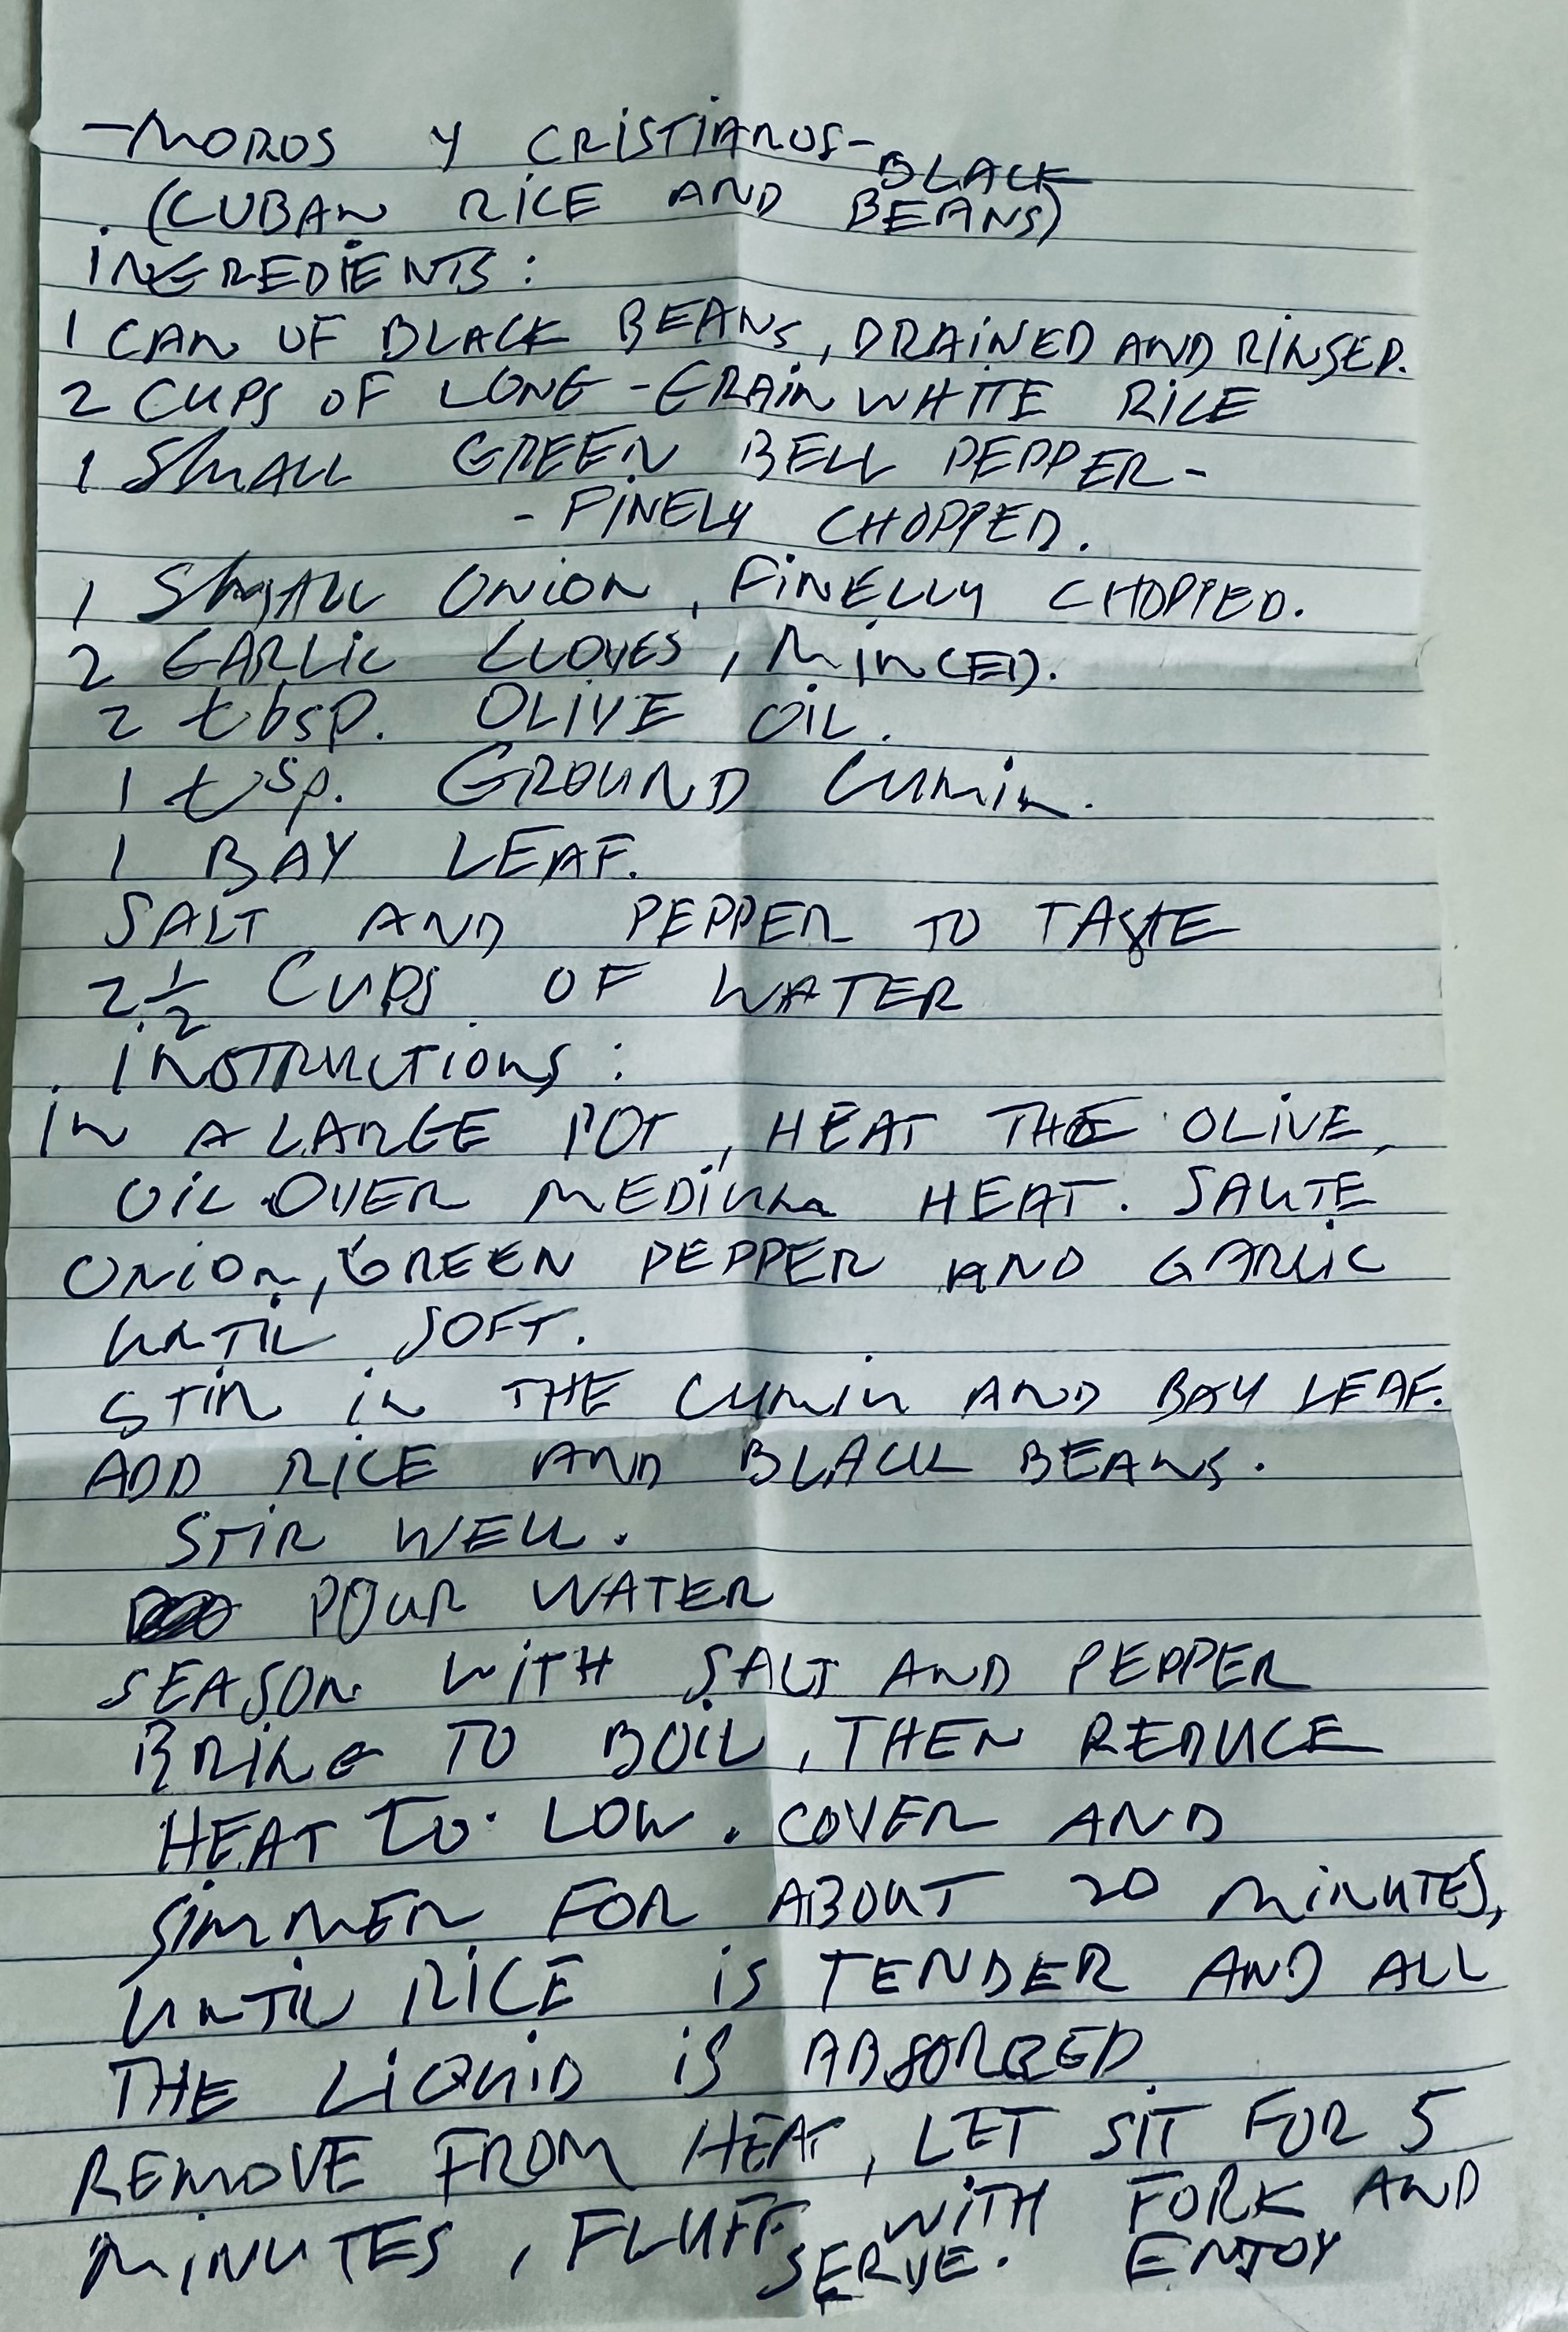 -MOROS Y CRISTIANOS-
(CUBAN RICE AND BLACK BEANS)
INGREDIENTS:
1 CAN OF BLACK BEANS, DRAINED AND RINSED.
2 CUPS OF LONG-GRAIN WHITE RICE
1 SMALL GREEN BELL PEPPER-
-FINELY CHOPPED.
1 SMALL ONION, FINELLY CHOPPED.
2 GARLIC CLOVES, MINCED.
2 tbsp. OLIVE OIL.
1 tsp. GROUND CUMIN.
1 BAY LEAF.
SALT AND PEPPER TO TASTE
2 1/2 CUPS OF WATER
INSTRUCTIONS:
IN A LARGE POT, HEAT THE OLIVE
OIL OVER MEDIUM HEAT. SAUTE
ONION, GREEN PEPPER AND GARLIC
UNTIL SOFT.
STIR IN THE CUMIN AND BAY LEAF.
ADD RICE AND BLACK BEANS.
STIR WELL.
POUR WATER
SEASON WITH SALT AND PEPPER
BRING TO BOIL, THEN REDUCE
HEAT TO LOW. COVER AND
SIMMER FOR ABOUT 20 MINUTES,
UNTIL RICE IS TENDER AND ALL
THE LIQUID IS ABSORBED.
REMOVE FROM HEAT, LET SIT FOR 5
MINUTES, FLUFF WITH FORK AND
SERVE. ENJOY